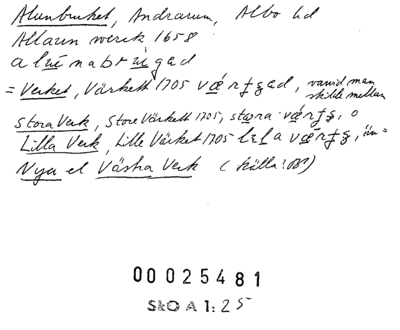 Alunbruket, Andrarum, Albo hd
Allaun werck 1658
alúnabrúgad
= Verket, Värkett 1705 værtʒad, varvid man skilde mellan
Stora Verk, Store Värkett 1705, stora værtʒ, o
Lilla Verk, Lille Värket 1705 lila værtʒ,
Nya el Västra Verk (källa: )
00025481
SkO A 1: 25